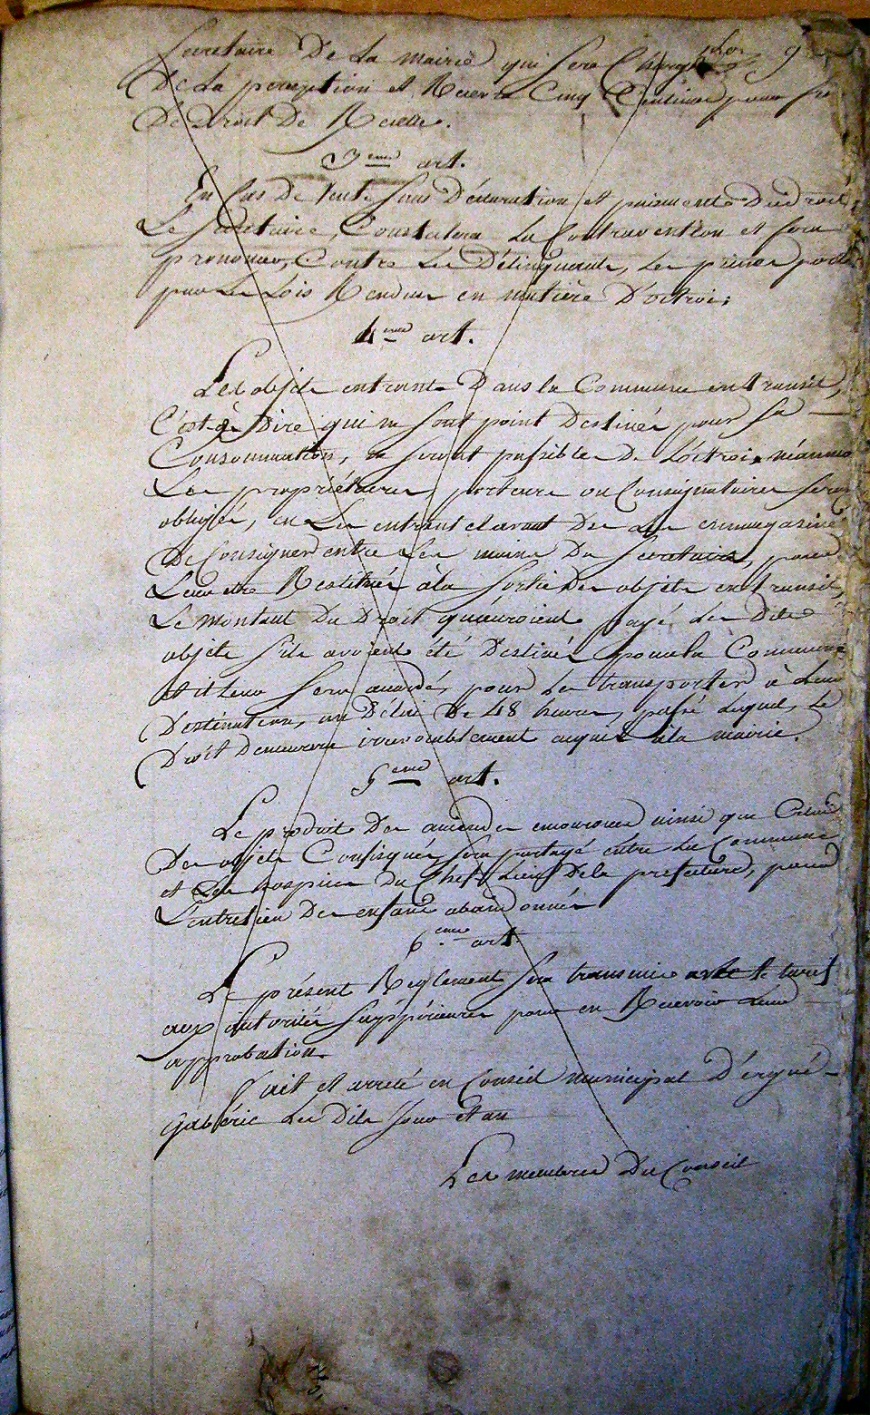 Secretaire De la mairie qui sera Chargé 9
De La perception et Recevra Cinq Centimes pour
De Droit De Recette.
3eme art.
En Cas De Vente Sans Déclaration et paiement Du droit,
Le Secretaire, Constatera La Contravention et sera
prononcer, Contre Les Délinquants, Les peines
par Les Lois Rendues en matière D'octroi;
4eme art.
Les objets entrants Dans la Commune en transit,
C'est-à Dire qui ne Sont point Destinés pour Sa
Consommation, ne seront passibles De L'octroi, néanmo
Les propriétaires, porteurs ou Consignataires Seront
obligés, en Les entrant et avant De Les emmagasiner
De Consigner entre Les mains Du Secretaire, pour
Leur etre Restitué à la Sortie Des objets en transit,
Le montant Du Droit qu'auroient payé Les Dits
objets s'ils avoient été Destinés pour la Commune
et il Leur Sera accordé, pour Les transporter à Leur
Destination, un Délai De 48 heures, passé Lequel, Le
Droit Demeurera irrevocablement acquis à la mairie.
5eme art.
Le produit Des amendes encourues ainsi que Celui
Des objets Confisqués, sera partagé entre La Commune
et Les hospices Du Chef Lieu De la préfecture, pour
L'entretien Des enfans abandonnés
6eme art.
Le présent Reglement Sera transmis avec le tarif
aux autorités Suppérieures pour en Recevoir Leur
approbation.
Fait et arreté en Conseil municipal D'ergué-
Gabéric Les Dits Jour et an
Les membres Du Conseil